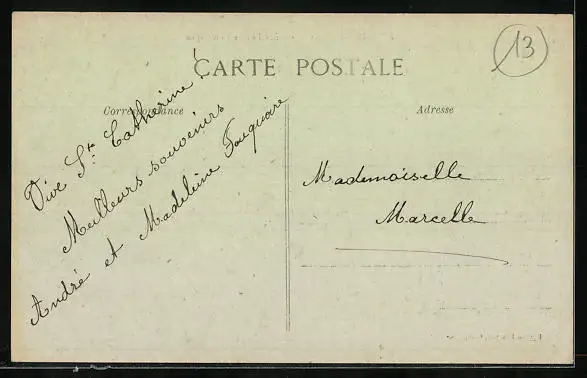 13
CARTE POSTALE
Correspondance
Adresse
Vive Ste Catherine !
Meilleurs souvenirs
André et Madeleine Fouquoire
Mademoiselle
Marcelle